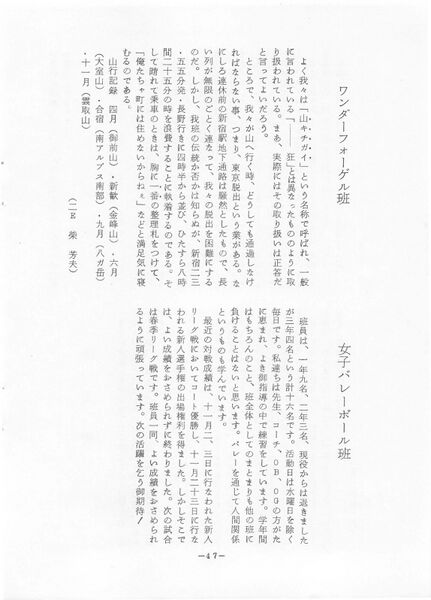 ワンダーフォーゲル班
よく我々は「山キチガイ」という名称で呼ばれ、一般
に言われている「――狂」とは異なったもののように取
り扱われている。まあ、実際にはその取り扱いは正答だ
と言ってよいだろう。
ところで、我々が山へ行く時、どうしても通過しなけ
ればならない事、つまり、東京脱出という業がある。な
にしろ連休前の新宿駅地下通路は騒然としたもので、長
い列が無限のごとく連なって、我々の脱出を困難にする
のだ。しかし、我班の伝統か否かは知らぬが、新宿二三
・五五分発・長野行きに四時半から並び、ひたすら八時
間二十五分の時を浪費することに執着するのである。そ
して晴れて乗車のときは、胸に一番の整理札をつけて、
「俺たちゃ町には住めないからねぇ」などと満足気に寝
むるのである。
山行記録　四月（御前山）・新歓（金峰山）・六月
（大室山）・合宿（南アルプス南部）・九月（八ガ岳）
・十一月（雲取山）
（二Ｅ　柴　芳夫）
女子バレーボール班
班員は、一年九名、二年三名、現役からは退きました
が三年四名という計十六名です。活動日は水曜日を除く
毎日です。私達ちは先生、コーチ、ＯＢ、ＯＧの方がた
に恵まれ、よき御指導の中で練習をしています。学年間
はもちろんのこと、班全体としてのまとまりも他の班に
負けることはないと思います。バレーを通じて人間関係
というものも学んでいます。
最近の対戦成績は、十一月二、三日に行なわれた新人
リーグ戦においてコート優勝し、十一月二十三日に行な
われる新人選手権の出場権利を得ました。しかしそこで
は、よい成績をおさめられずに終わりました。次の試合
は春季リーグ戦です。班員一同、よい成績をおさめられ
るように頑張っています。次の活躍を乞う御期待！
―47―